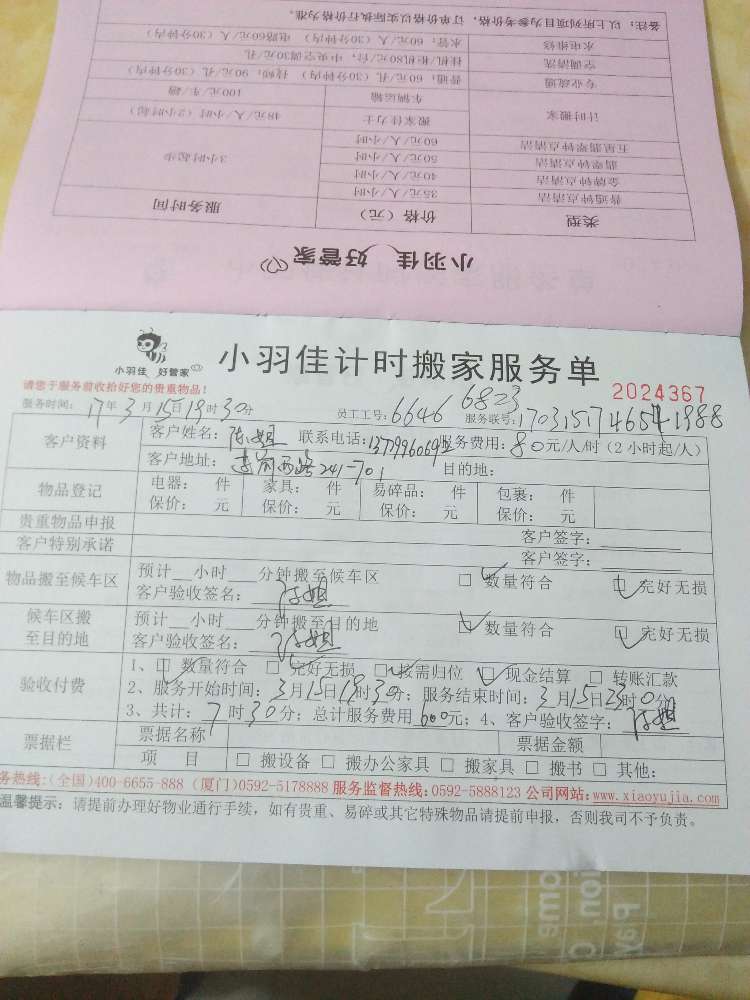 备注：以上所列项目为参考价格，订单价格以实际执行价格为准。
水电维修 水管：60元/人（30分钟内） 电路60元/人（30分钟内）
空调清洗 挂机/柜机80元/台，中央空调30元/孔
专业疏通 普通：60元/孔（30分钟内） 特殊：90元/孔（30分钟内）
计时搬家 车辆运输 100元/车/趟
搬家佳力士 48元/人/小时（2小时起）
五星翡翠钟点清洁 60元/人/小时
翡翠钟点清洁 50元/人/小时 3小时起步
金牌钟点清洁 40元/人/小时
普通钟点清洁 35元/人/小时
类型 价格（元） 服务时间
小羽佳 好管家
小羽佳 好管家
小羽佳计时搬家服务单
请您于服务前收拾好您的贵重物品！
2024367
服务时间：17年3月15日19时30分 员工工号：6646 6823 服务联号：
客户资料 客户姓名：陈姐 联系电话： 服务费用：80元/人/时（2小时起/人）
客户地址： 241-701 目的地：
物品登记 电器： 件 家具： 件 易碎品： 件 包裹： 件
保价： 元 保价： 元 保价： 元 保价： 元
贵重物品申报 客户签字：
客户特别承诺 客户签字：
物品搬至候车区 预计__小时___分钟搬至候车区 □ 数量符合 □ 完好无损
客户验收签名：陈姐
候车区搬至目的地 预计__小时___分钟搬至目的地 □ 数量符合 □ 完好无损
客户验收签名：陈姐
验收付费 1、□ 数量符合 □ 完好无损 □ 按需归位 □ 现金结算 □ 转账汇款
2、服务开始时间：3月15日19时30分；服务结束时间：3月15日23时0分
3、共计：7时30分；总计服务费用600元；4、客户验收签字：陈姐
票据栏 票据名称 票据金额
项 目 □ 搬设备 □ 搬办公家具 □ 搬家具 □ 搬书 □ 其他：
务热线：(全国)400-6655-888 (厦门)0592-5178888 服务监督热线：0592-5888123 公司网站：www.xiaoyujia.com
温馨提示：请提前办理好物业通行手续，如有贵重、易碎或其它特殊物品请提前申报，否则我司不予负责。